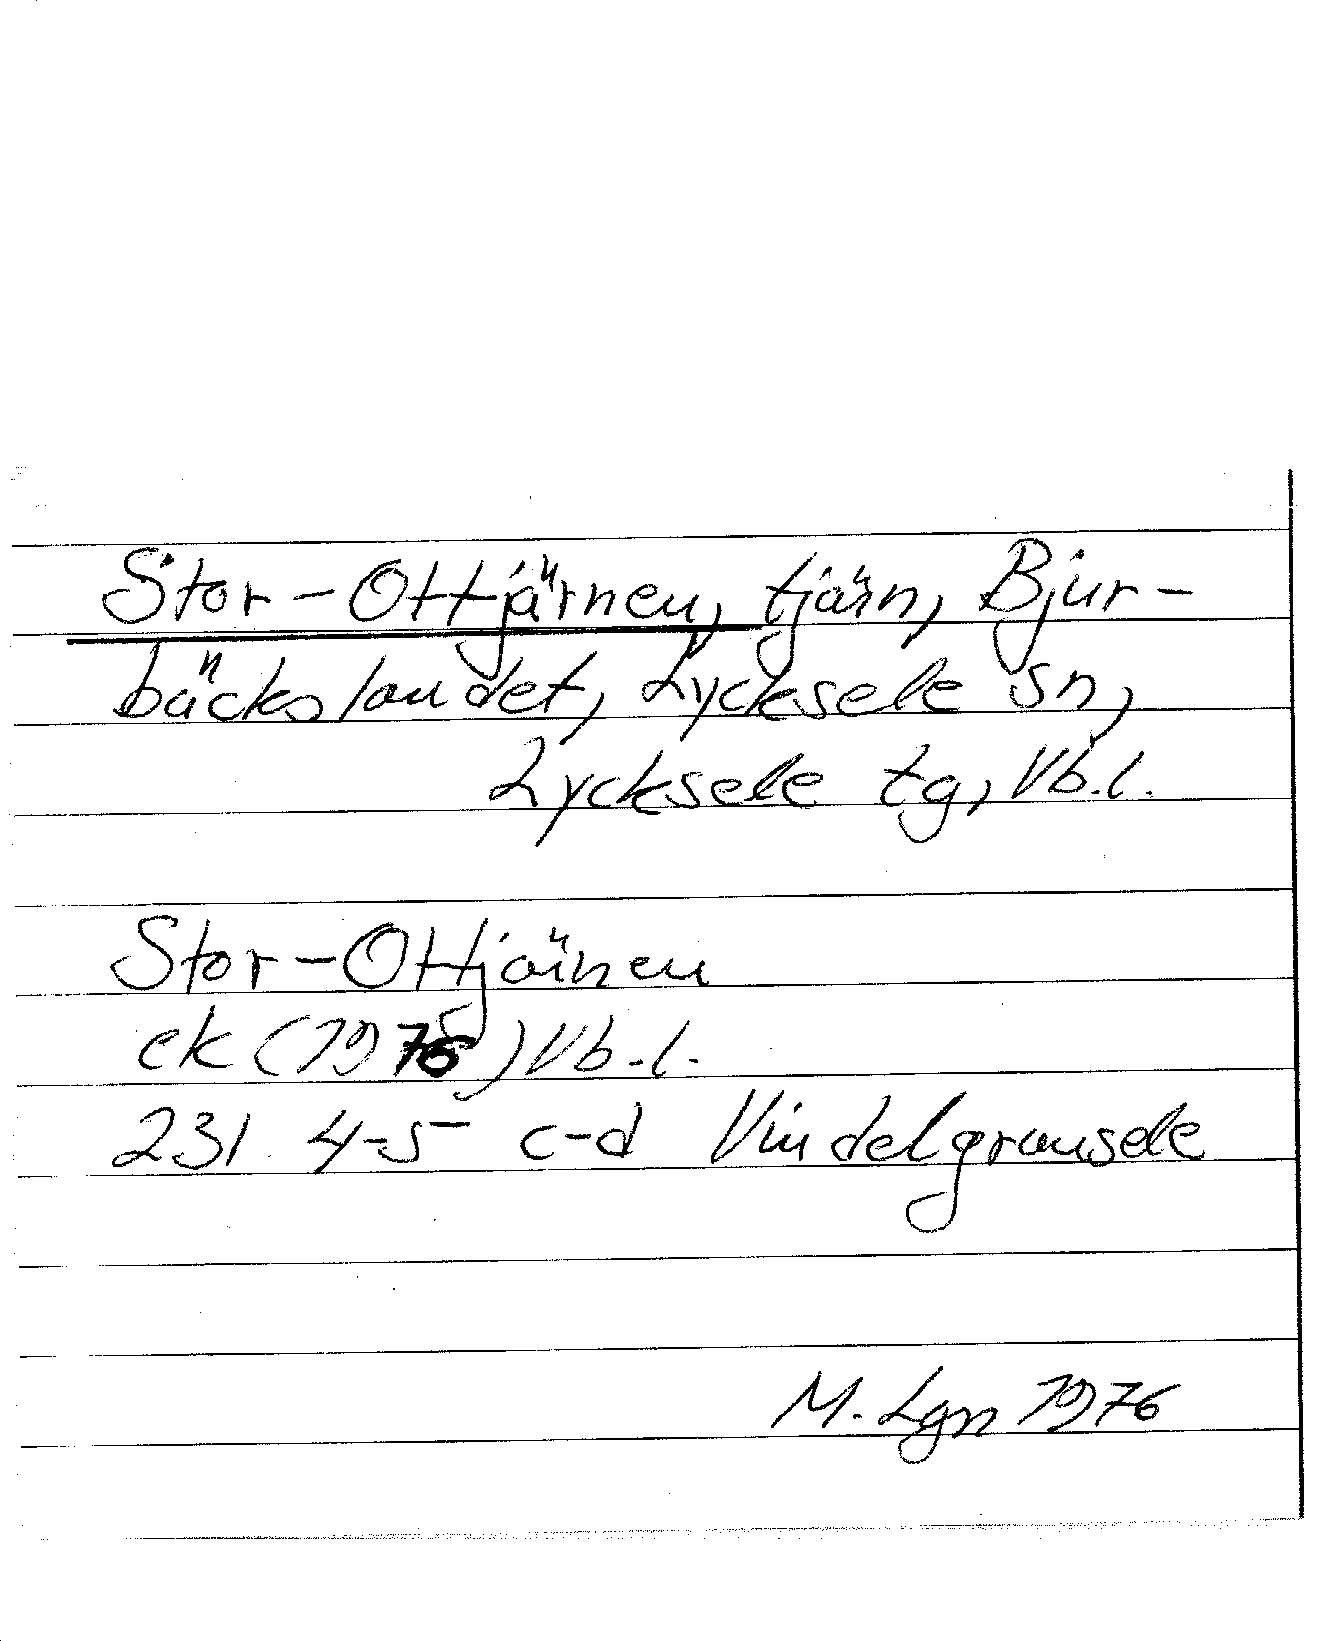 Stor-Ottjärnen, tjärn, Bjur-
bäckslandet, Lycksele sn,
Lycksele tg, Vb.l.
Stor-Ottjärnen
ek (1976) Vb.l.
231 4-5 c-d Vindelgransele
M. Lgn 1976